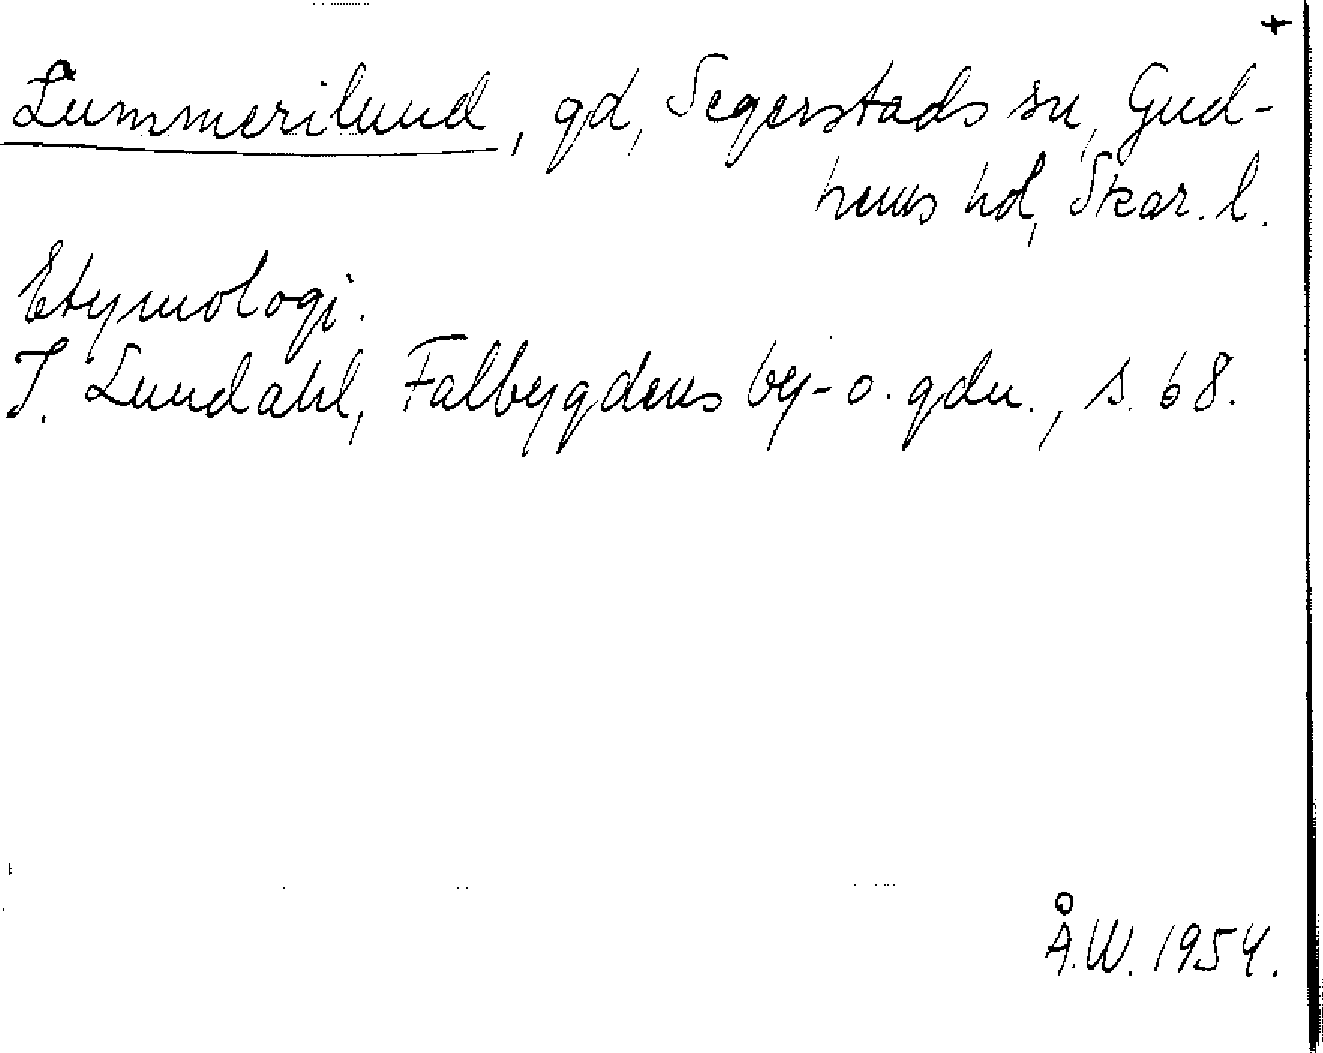 +
Lummerilund, gd, Segerstads sn, Gud-
hems hd, Skar. l.
Etymologi.
I. Lundahl, Falbygdens by- o. gdn., s. 68.
Å.W. 1954.